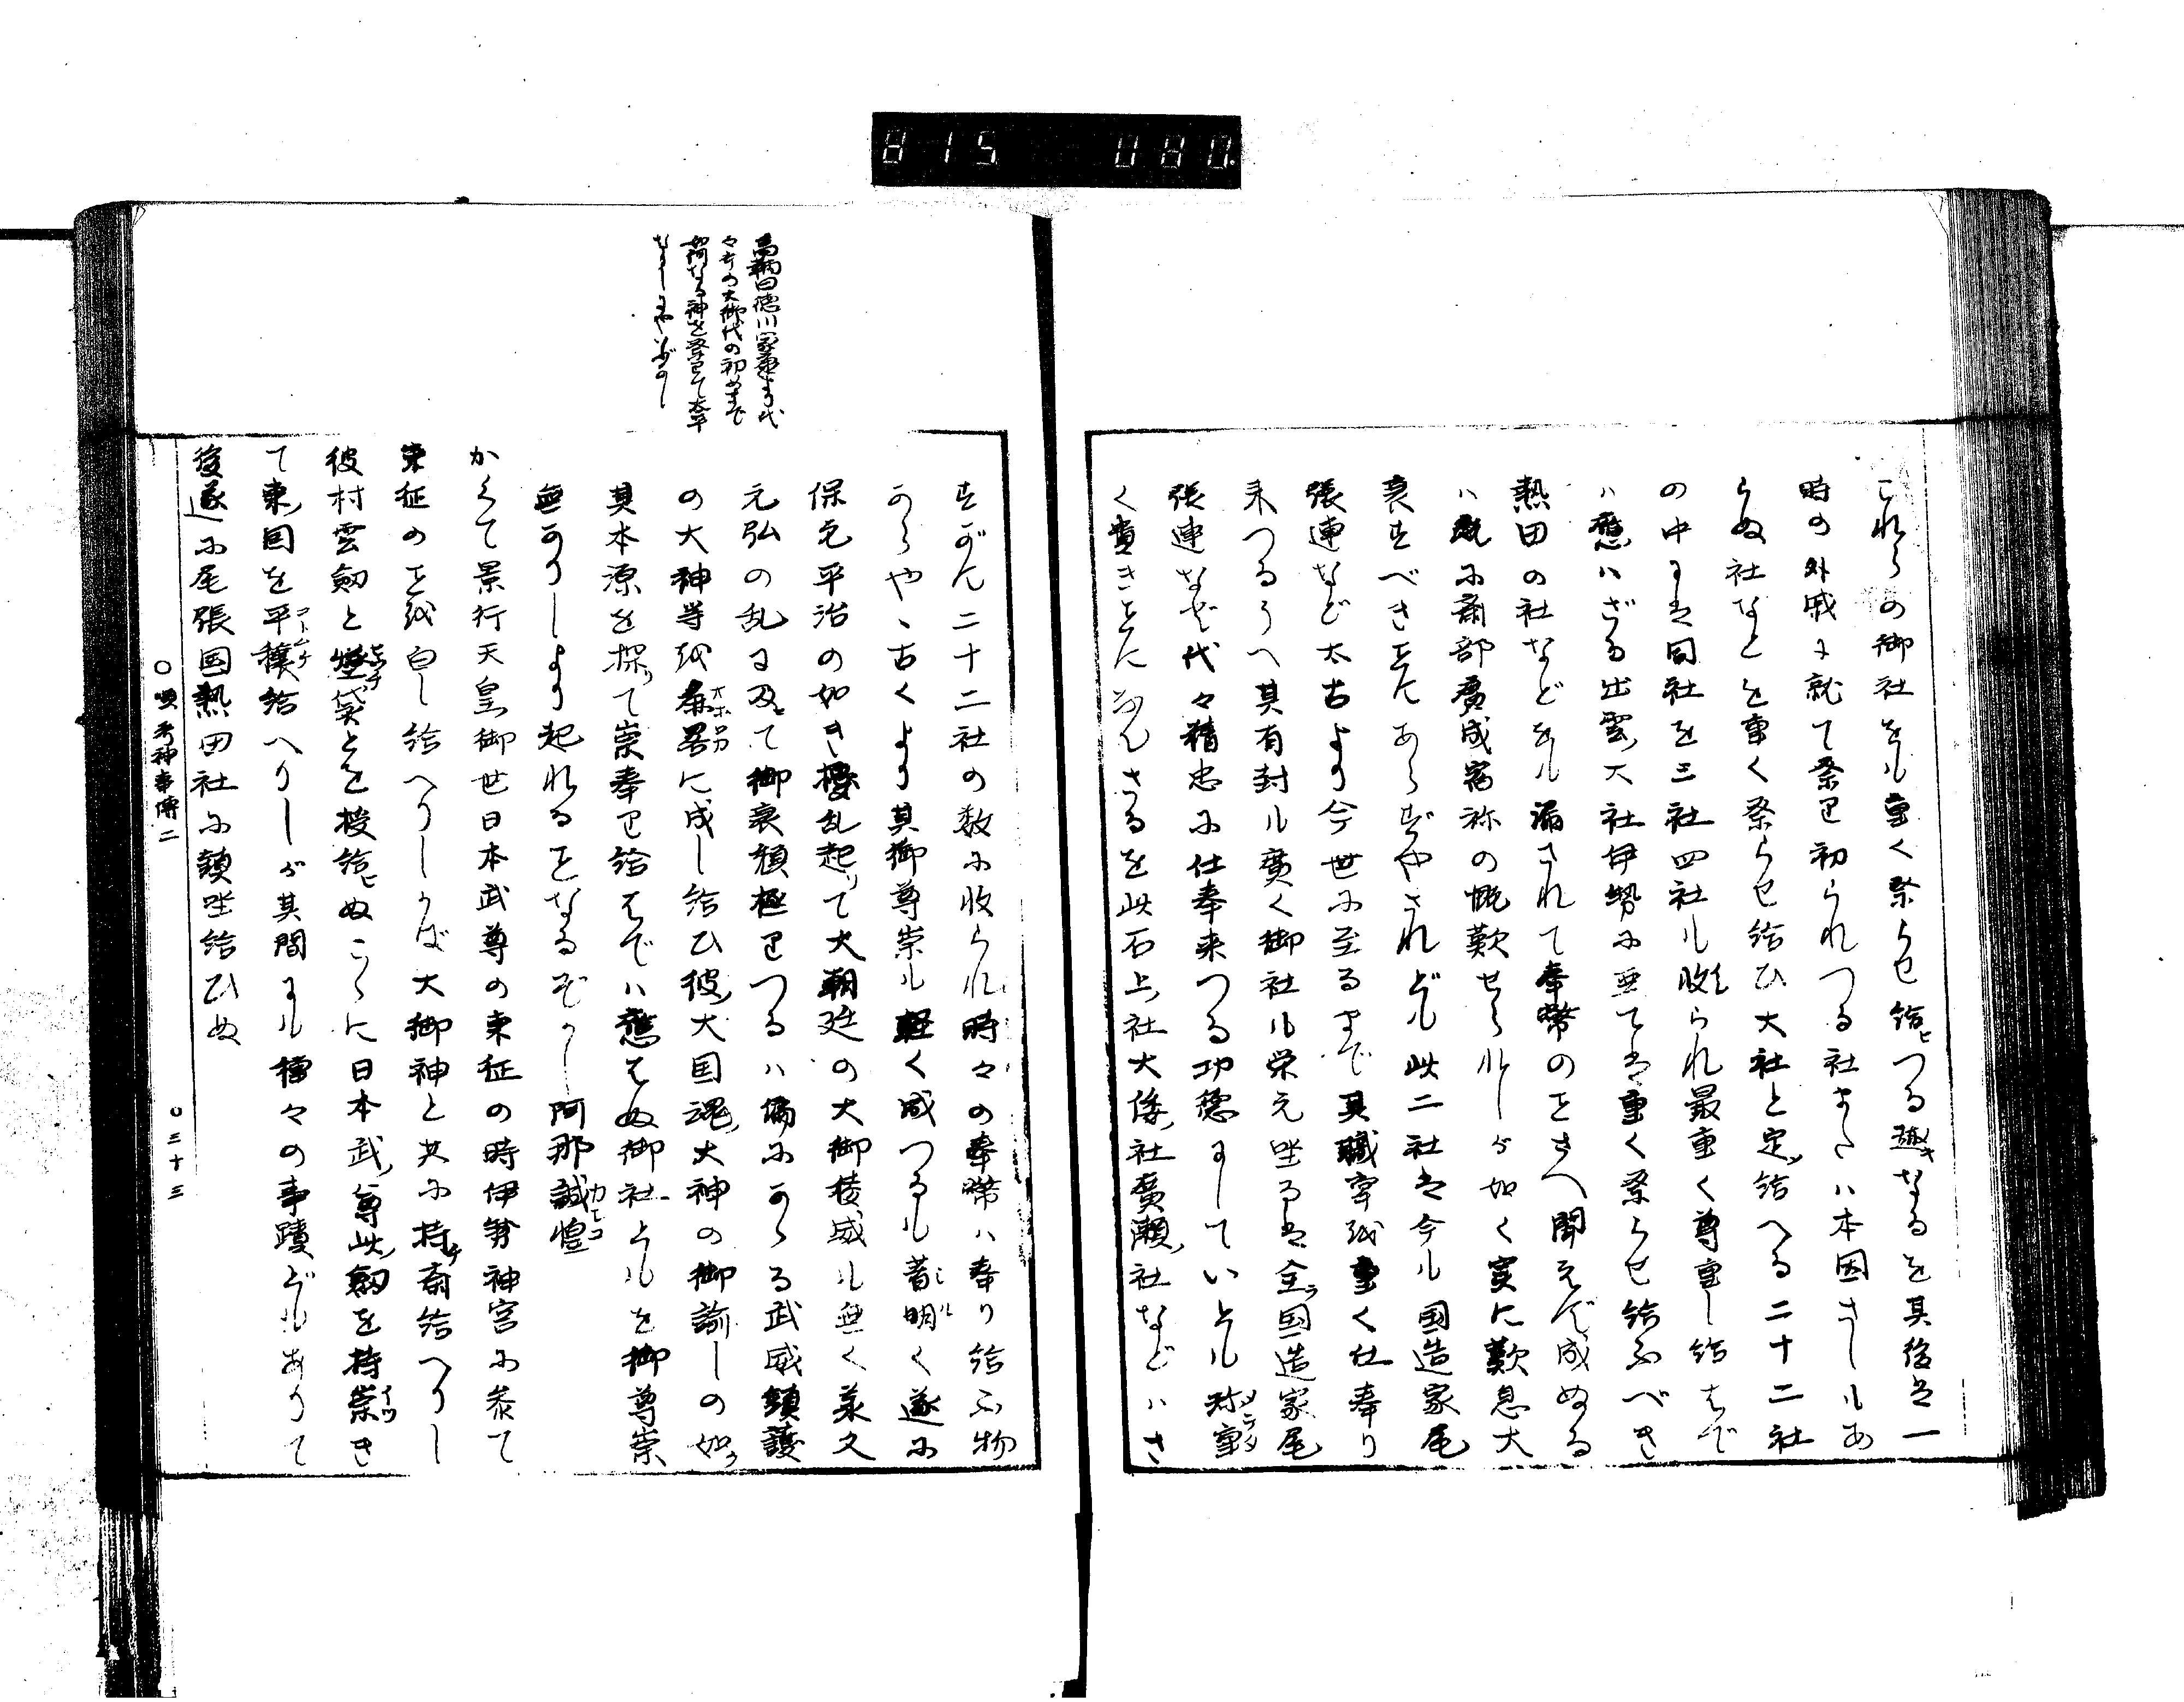 815 080
これらの御社をも重く祭らせ給ヒつる趣キなるを其後は一
時の外戚に就て祭り初られつる社または本因さしもあ
らぬ社などを重く祭らせ給ひ大社と定メ給へる二十二社
の中には同社を三社四社も収メられ最重く尊重し給はで
は応はざる出雲大社伊勢に亜ては重く祭らせ給ふべき
熱田の社などをも漏されて奉幣のことさへ聞えず成ぬる
は既に斎部広成宿祢の慨歎せられしが如く実に歎息大
哀すべきことにあらずやされども此二社は今も国造家尾
張連など太古より今世に至るまで其職掌を重く仕奉り
来つるうへ其有封も広く御社も栄え坐るは全ラ国造家尾
張連など代々精忠に仕奉来つる功徳にしていとも珍重
く貴きことになんさるを此石上社大倭社広瀬社などはさ
すがに二十二社の数に収られ時々の奉幣は奉り給ふ物
からや、古くより其御尊崇も軽く成つるも著シルく遂に
保元平治の如き擾乱起りて大朝廷の大御稜威も無く承久
元弘の乱に及て御衰頽極りつるは偏にかゝる武威鎮護
の大神等を疎畧に成し給ひ彼大国魂大神の御諭しの如ク
其本源を探て崇奉り給はでは応はぬ御社ともを御尊崇
無かりしより起れることなるぞかし阿那誠惶カシコ
かくて景行天皇御世日本武尊の東征の時伊勢神宮に参て
東征のことを白し給へりしかば大御神と共に持チ斎給へりし
彼村雲剣と燧袋とを授給ヒぬこゝに日本武尊此剣を持崇イツき
て東国を平穣コトムケ給へりしが其間にも種々の事蹟どもありて
後遂に尾張国熱田社に鎮坐給ひぬ
高鞆曰徳川家
々の大御代の初めまで
如何なる神を
神事傳二
○三十三